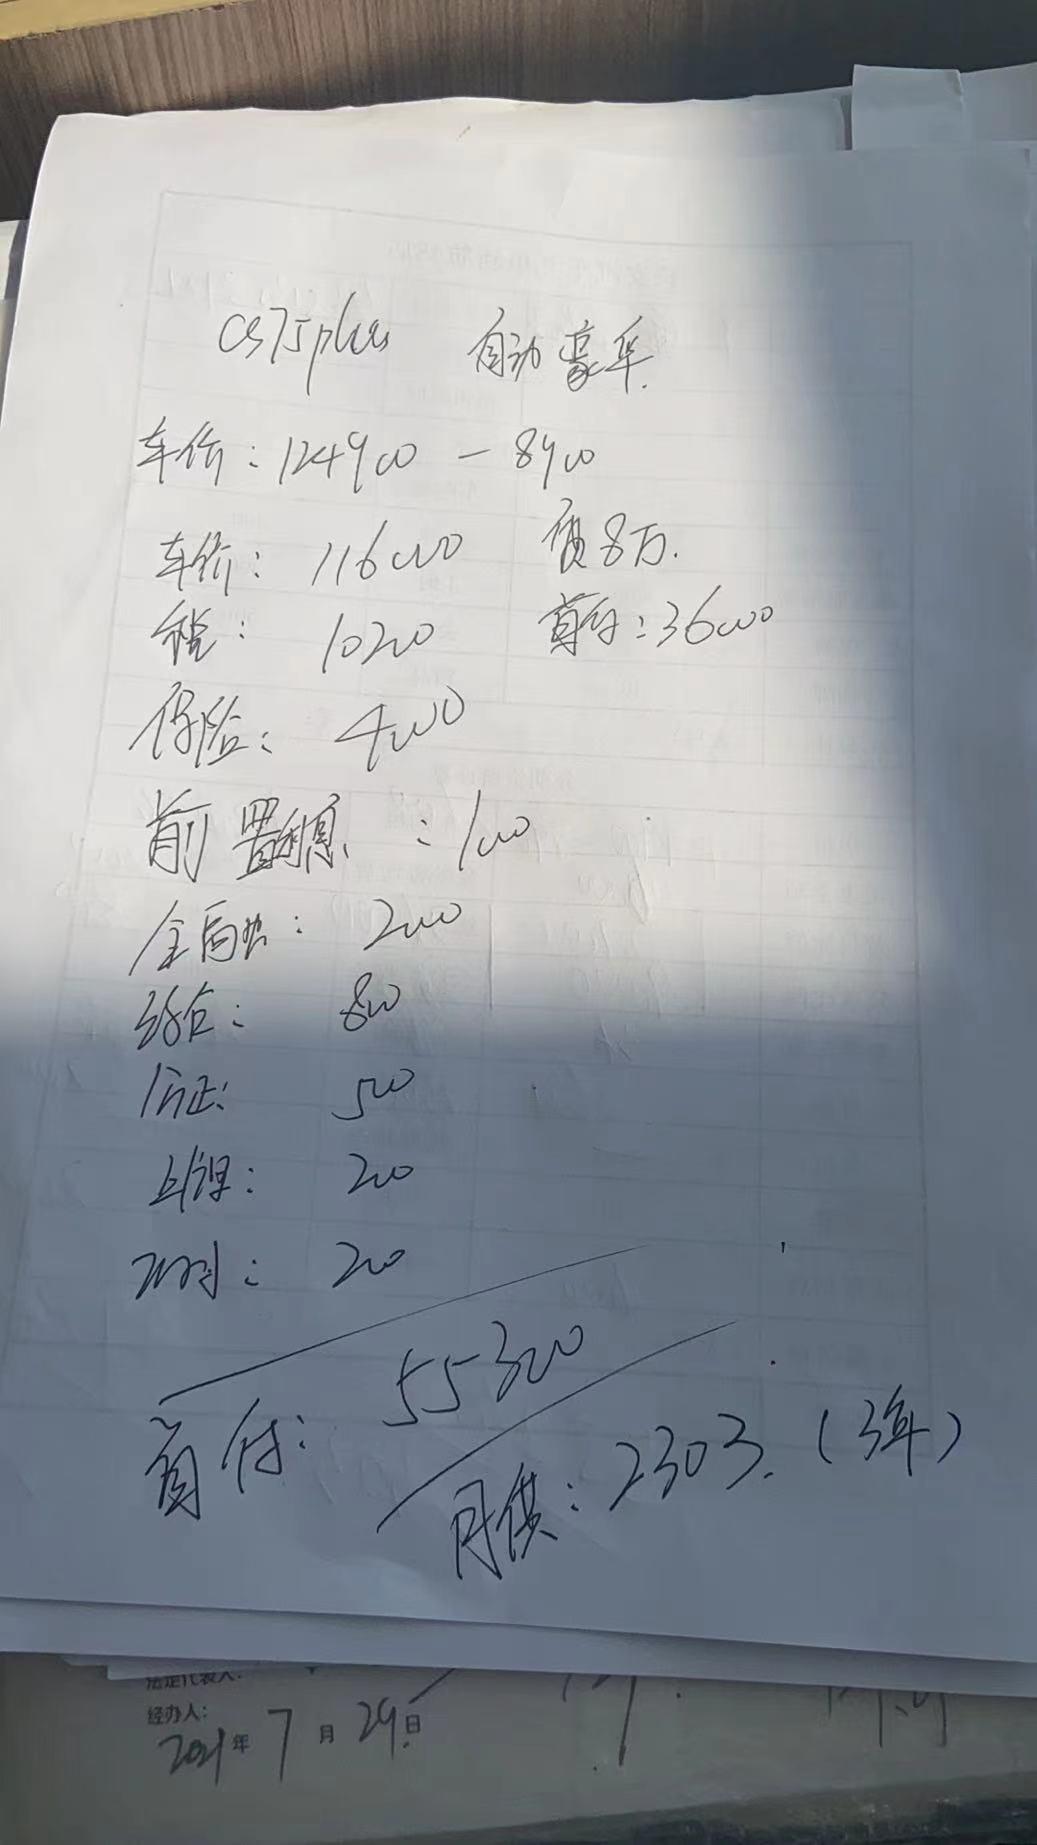 CS75plus 自动豪华
车价：124900 － 8900
车价：116000 贷8万.
税：10200 首付：36000
保险：4000
前置利息：1000
金融：2000
综合：800
公证：500
上牌：200
首付：55300
月供：2303.（3年）
经办人：
2021年7月29日